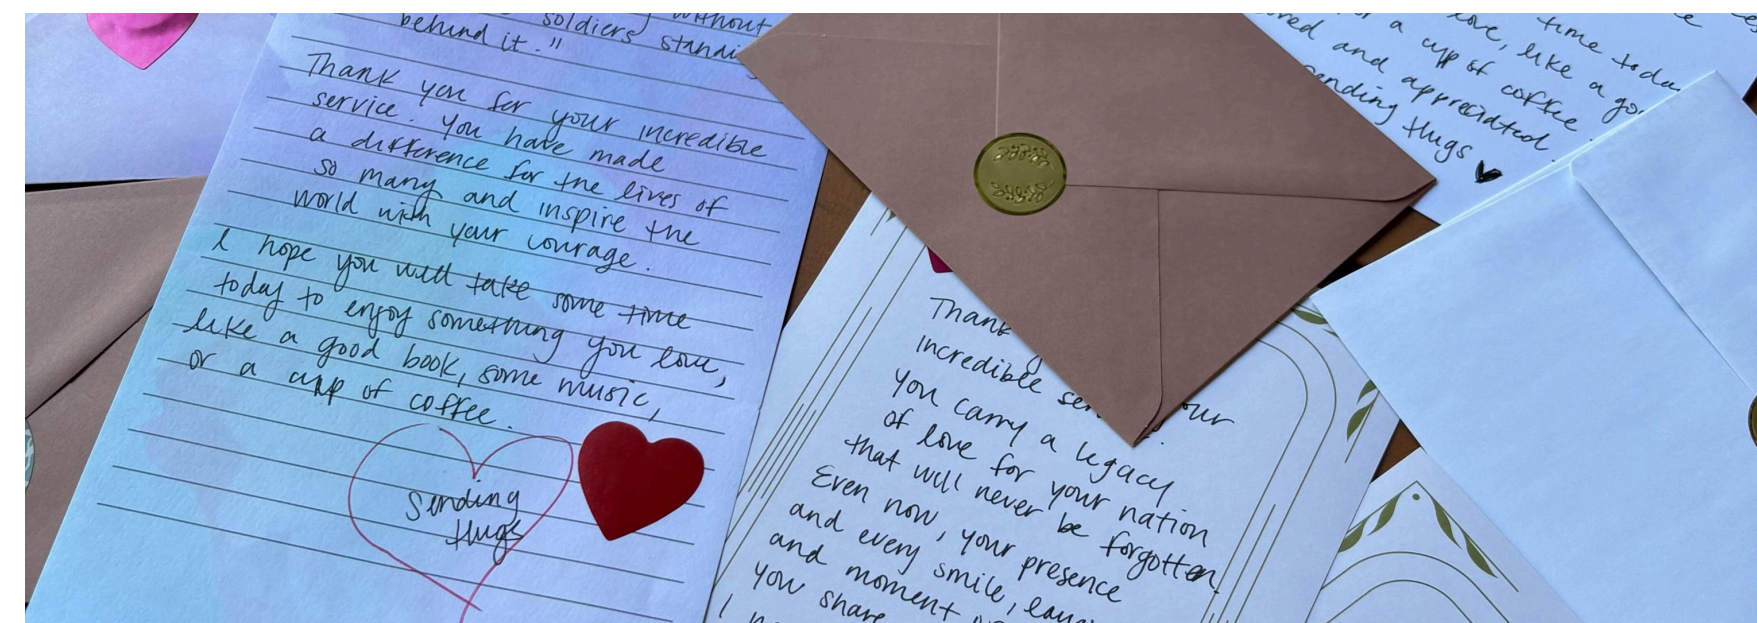 soldiers standing
behind it."
Thank you for your incredible
service. You have made
a difference for the lives of
so many and inspire the
world with your courage.
I hope you will take some time
today to enjoy something you love,
like a good book, some music,
or a cup of coffee.
Sending
Hugs
Thank
incredible
You carry a legacy
of love for your nation
that will never be forgotten
Even now, your presence
and every smile,
and moment
you share
I
time today
love, like a
a cup of coffee.
and appreciated.
Hugs